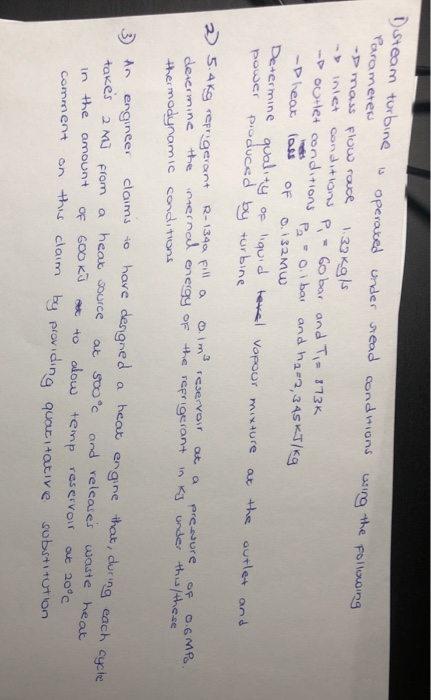 ① steam turbine is operated under stead conditions using the following
parameters
-> mass flow rate 1.32kg/s
-> inlet conditions P₁ = 60 bar and T₁ = 873K
-> outlet conditions P₂ = 0.1 bar and h₂=2,345KJ/kg
-> heat loss of 0.132MW
Determine quality of liquid vapour mixture at the outlet and
power produced by turbine
2) 5.4kg refrigerant R-134a fill a 0.1m³ reservoir at a pressure of 0.6MPa.
determine the internal energy of the refrigerant in KJ under this/these
thermodynamic conditions
③ An engineer claims to have designed a heat engine that, during each cycle
takes 2 MJ from a heat source at 500°C and releases waste heat
in the amount of 600KJ to a low temp reservoir at 20°C
comment on this claim by providing quatitative substitution